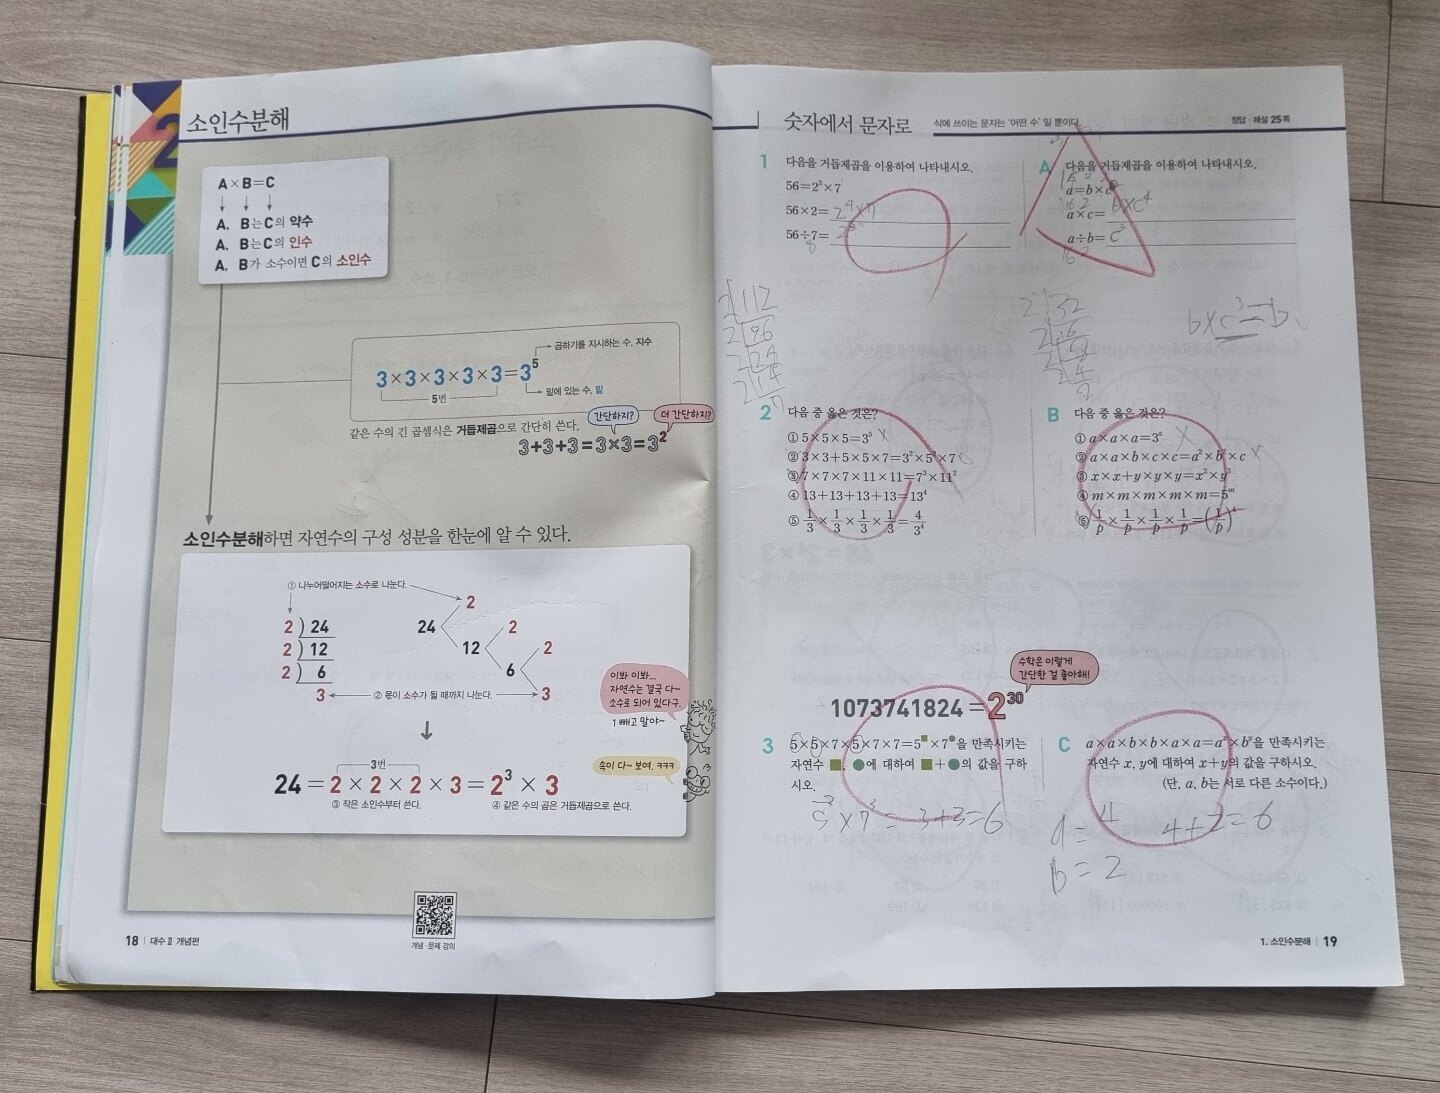 2
소인수분해
A×B=C
↓ ↓ ↓
A, B는 C의 약수
A, B는 C의 인수
A, B가 소수이면 C의 소인수
곱하기를 지시하는 수, 지수
3×3×3×3×3=3⁵
5번
밑에 있는 수, 밑
같은 수의 긴 곱셈식은 거듭제곱으로 간단히 쓴다.
간단하지?
더 간단하지?
3+3+3=3×3=3²
소인수분해하면 자연수의 구성 성분을 한눈에 알 수 있다.
① 나누어떨어지는 소수로 나눈다.
2 ) 24
2 ) 12
2 ) 6
3
24
2
12
2
6
2
3
② 몫이 소수가 될 때까지 나눈다.
이봐 이봐...
자연수는 결국 다~
소수로 되어 있다구.
1 빼고 말야~
속이 다~ 보여. ㅋㅋㅋ
3번
24 = 2 × 2 × 2 × 3 = 2³ × 3
③ 작은 소인수부터 쓴다.
④ 같은 수의 곱은 거듭제곱으로 쓴다.
개념·문제 강의
18 | 대수 Ⅱ 개념편
숫자에서 문자로
식에 쓰이는 문자는 '어떤 수' 일 뿐이다.
정답·해설 25쪽
1
다음을 거듭제곱을 이용하여 나타내시오.
56=2³×7
56×2= 2⁴×7
56÷7= 2³
8
A
다음을 거듭제곱을 이용하여 나타내시오.
a=b×c³
a×c= b×c⁴
a÷b= c³
2 112
2 56
2 28
2 14
7
2 32
2 16
2 4
2
b×c³÷b
2
다음 중 옳은 것은?
① 5×5×5=3⁵ ×
② 3×3+5×5×7=3²×5²×7
③ 7×7×7×11×11=7³×11²
④ 13+13+13+13=13⁴
⑤ 1/3×1/3×1/3×1/3=4/3⁴
B
다음 중 옳은 것은?
① a×a×a=3ᵃ ×
② a×a×b×c×c=a²×b²×c ×
③ x×x+y×y×y=x²×y³
④ m×m×m×m×m=5ᵐ
⑤ 1/p×1/p×1/p×1/p=(1/p)⁴
수학은 이렇게
간단한 걸 좋아해!
1073741824=2³⁰
3
5×5×7×5×7×7=5^■×7^●을 만족시키는
자연수 ■, ●에 대하여 ■+●의 값을 구하
시오.
5³×7³= 3+3=6
C
a×a×b×b×a×a=aˣ×bʸ을 만족시키는
자연수 x, y에 대하여 x+y의 값을 구하시오.
(단, a, b는 서로 다른 소수이다.)
a=4 4+2=6
b=2
1. 소인수분해 | 19